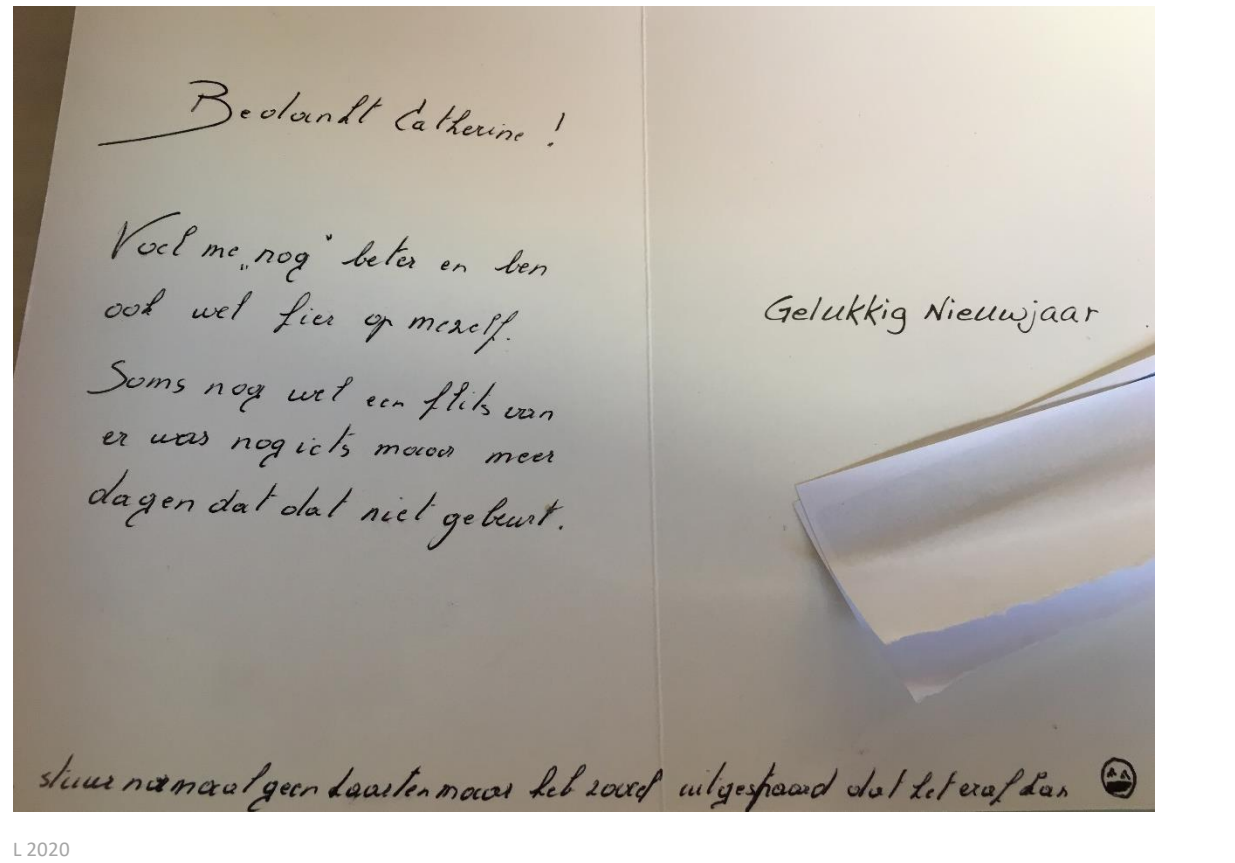 Bedankt Catherine !
Voel me „nog" beter en ben
ook wel fier op mezelf.
Soms nog wel een flits van
er was nog iets maar meer
dagen dat dat niet gebeurt.
Gelukkig Nieuwjaar
stuur normaal geen kaarten maar heb zoveel uitgespaard dat het eraf kan
L 2020